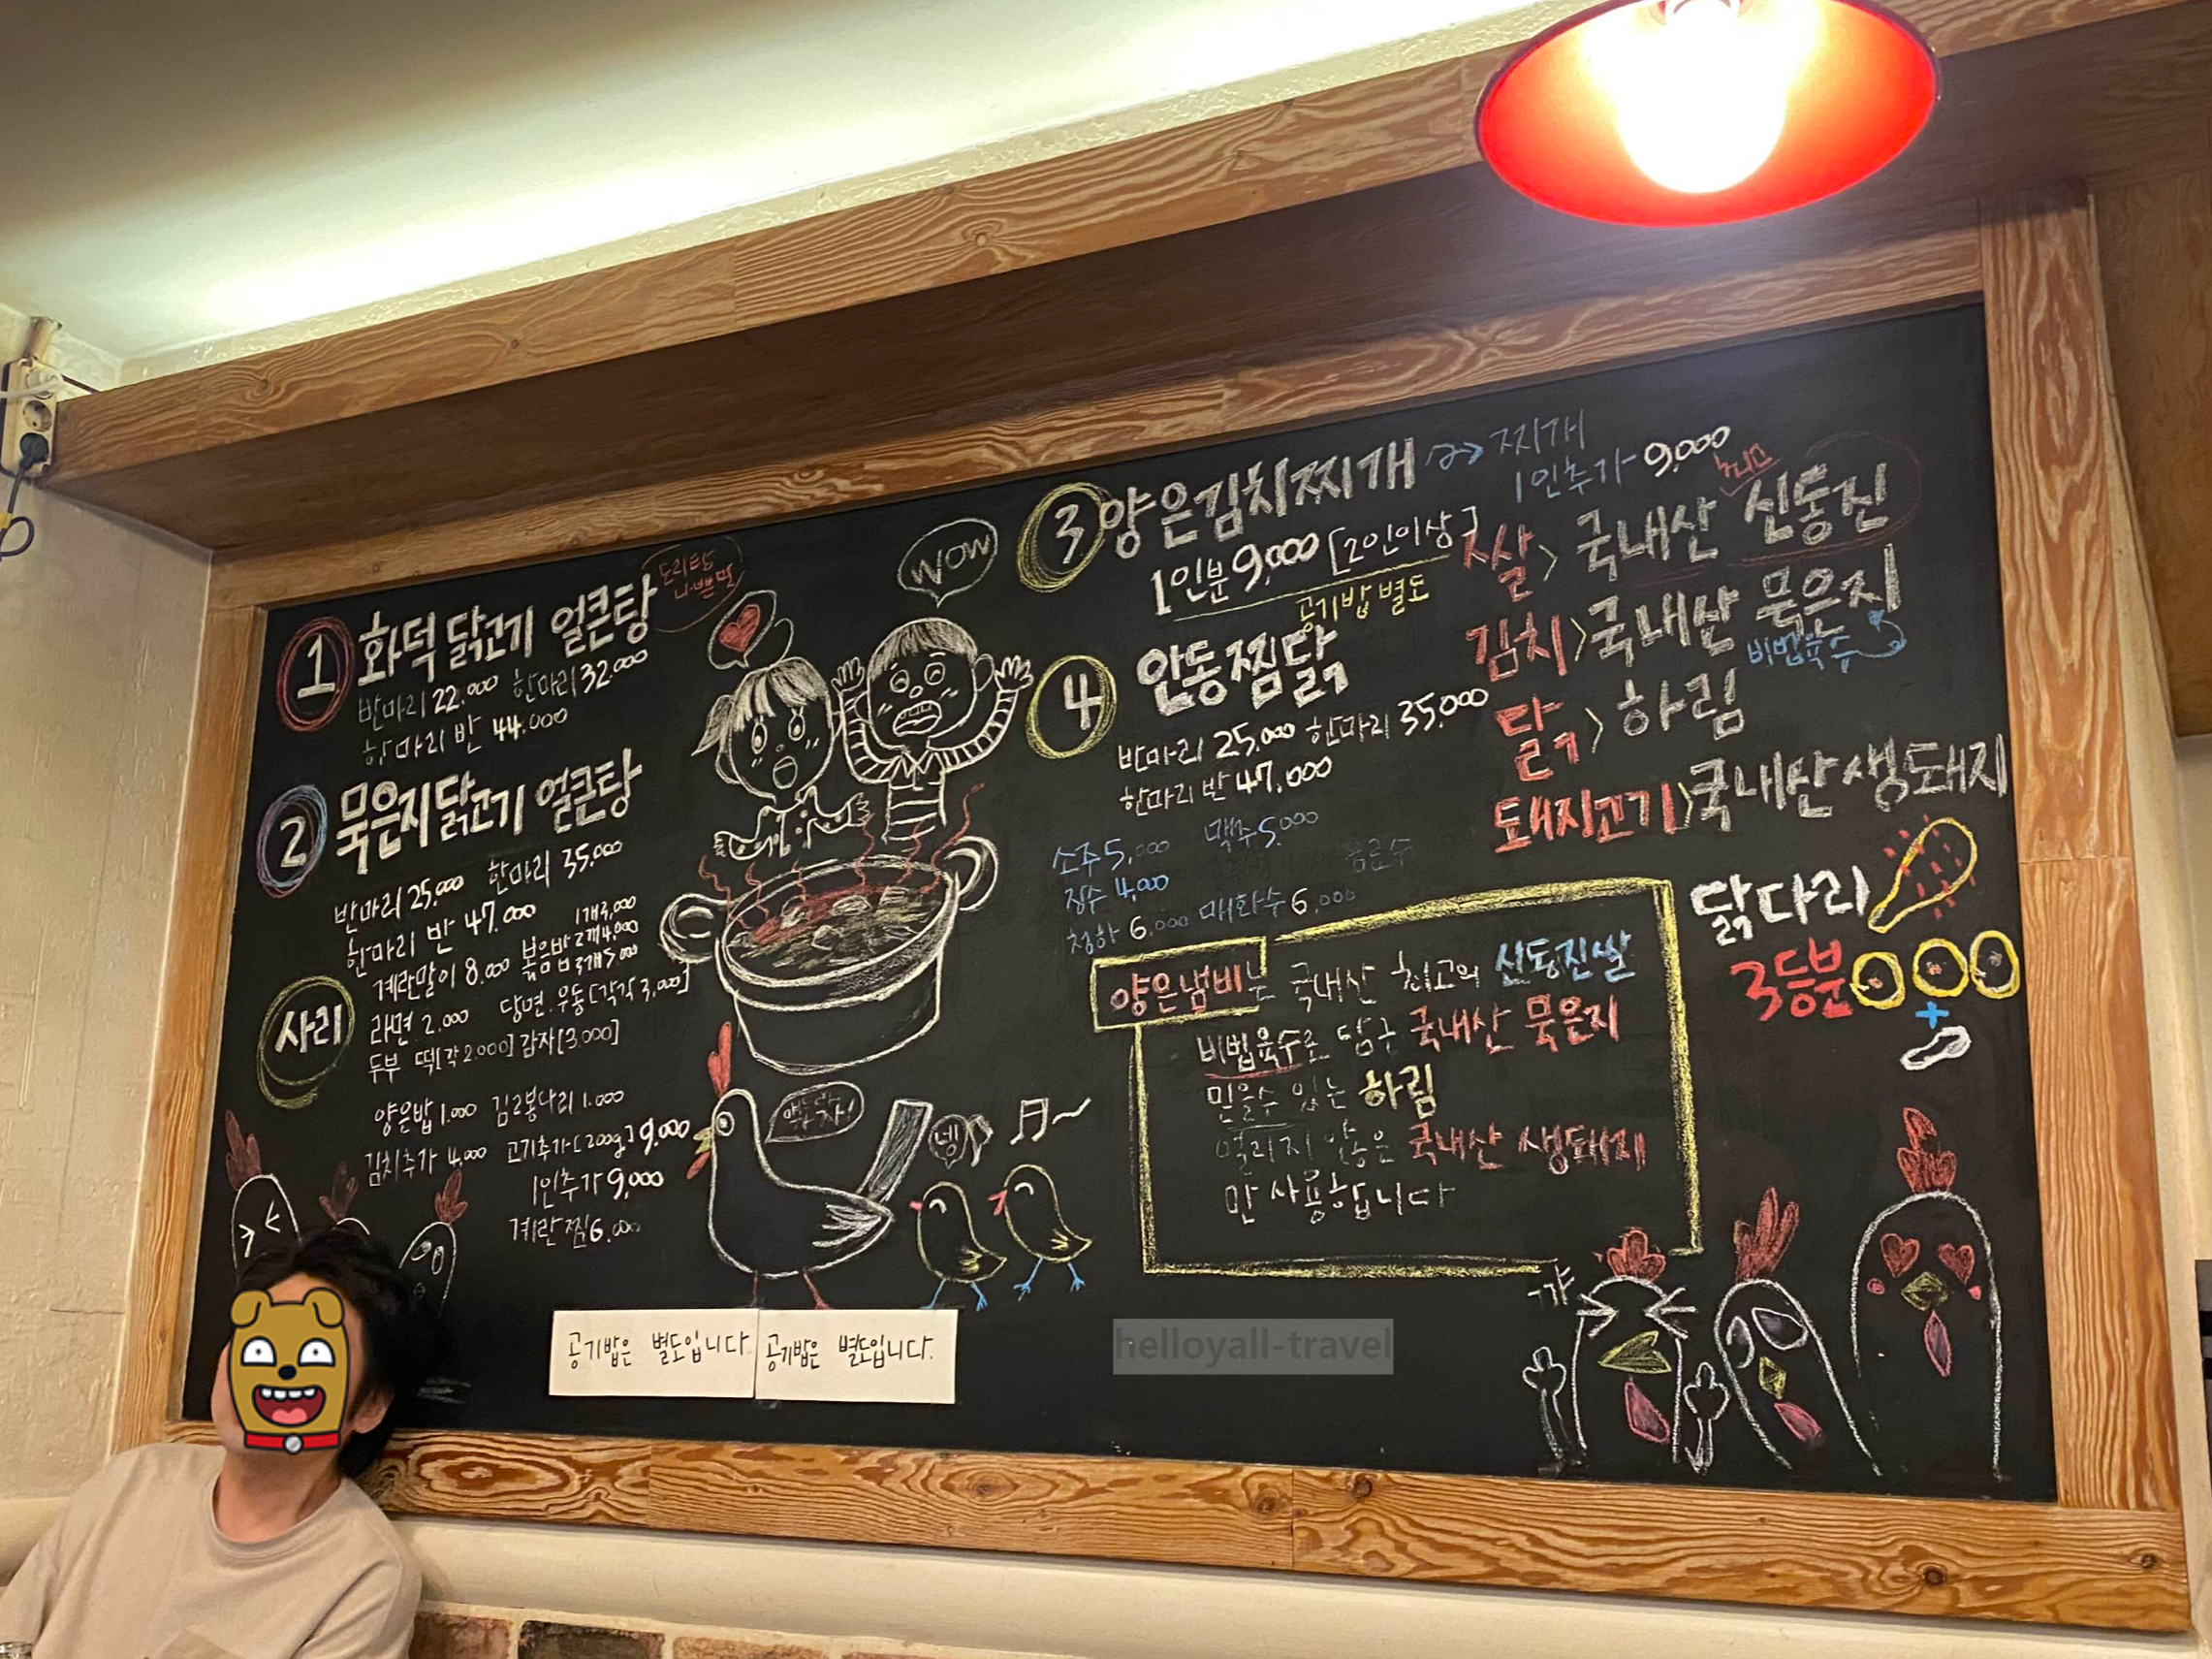 1 화덕 닭고기 얼큰탕
도리탕
나쁜말
반마리 22.000 한마리 32.000
한마리 반 44.000
2 묵은지닭고기 얼큰탕
반마리 25,000 한마리 35.000
한마리 반 47.000
계란말이 8.000 볶음밥
2개 4,000
3개 5,000
사리
라면 2.000 당면.우동[각각 3,000]
두부 떡[각 2.000] 감자[3.000]
양은밥 1.000 김2봉다리 1.000
김치추가 4,000 고기추가[200g] 9,000
1인추가 9,000
계란찜 6.000
WOW
넹
공기밥은 별도입니다
공기밥은 별도입니다.
3 양은김치찌개 찌개
1인추가 9,000
1인분 9,000 [2인이상]
공기밥 별도
4 안동찜닭
반마리 25,000 한마리 35,000
한마리 반 47,000
소주 5,000 맥주 5.000
음료수
장수 4,000
청하 6.000 매화수 6,000
쌀> 국내산 신동진
김치>국내산 묵은지
비법육수
닭> 하림
돼지고기>국내산 생돼지
닭다리
3등분
+
양은냄비는 국내산 최고의 신동진쌀
비법육수로 담근 국내산 묵은지
믿을수 있는 하림
얼리지 않은 국내산 생돼지
만 사용합니다
꺄
helloyall-travel